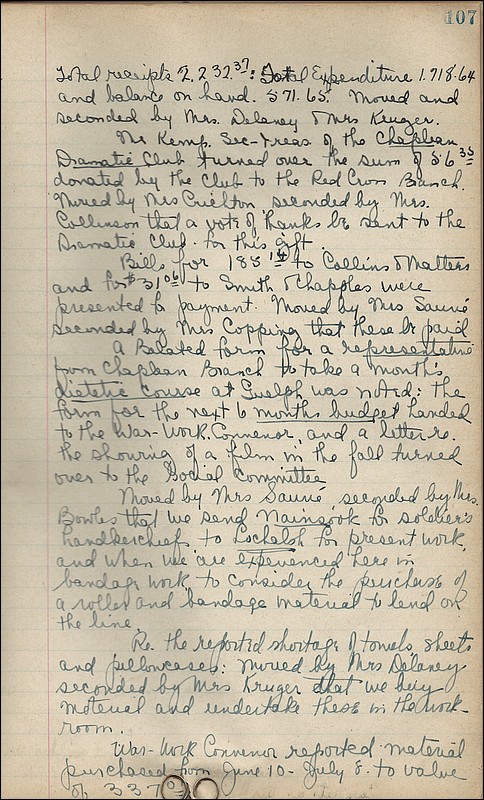 107
Total receipts 2,232.37: Total Expenditure 1.718.64
and balance on hand. 571.65. Moved and
seconded by Mrs. Delaney & Mrs Kruger.
Mr Kemp. Sec-treas of the Chaplean
Dramatic Club turned over the sum of 56 35
donated by the Club to the Red Cross Branch.
Moved by Mrs seconded by Mrs.
Collinson that a vote of thanks be sent to the
Dramatic Club for this gift.
Bills for 188 14 to Collins & Matters
and for $31 06 to Smith & Chapples were
presented for payment. Moved by Mrs Sauvé
seconded by Mrs Copping that these be paid
A Belated form for a representative
from Chaplean Branch to take a month's
dietetic course at Guelph was noted: the
form for the next 6 months budget handed
to the War-Work Convenor, and a letter re.
the showing of a film in the fall turned
over to the Social Committee
Moved by Mrs Sauvé, seconded by Mrs.
Bowles that we send Nainsook for soldier's
handkerchiefs to Lochalsh for present work,
and when we are experienced here in
bandage work, to consider the purchase of
a roller and bandage material to lend on
the line.
Re. the reported shortage of towels, sheets
and pillowcases: moved by Mrs Delaney
seconded by Mrs Kruger that we buy
material and undertake these in the work-
room.
War-Work Convenor reported material
purchased from June 10 - July 8. to value
of 337